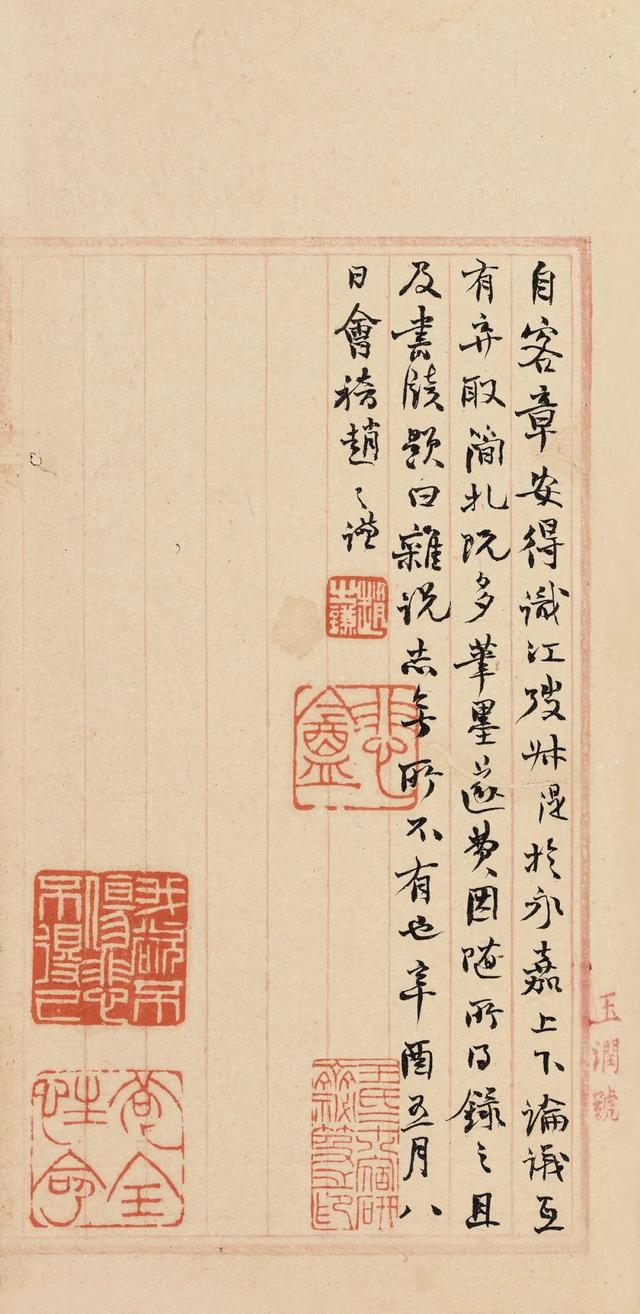 玉潤號
自客章安得識江弢叔湜於永嘉上下論議互
有弃取簡札既多筆墨遂費因隨所得錄之且
及書牘題白雜說志無所不有也辛酉五月八
日會稽趙之謙
趙之謙
悲盦
我欲不傷悲不得已
苟全性命